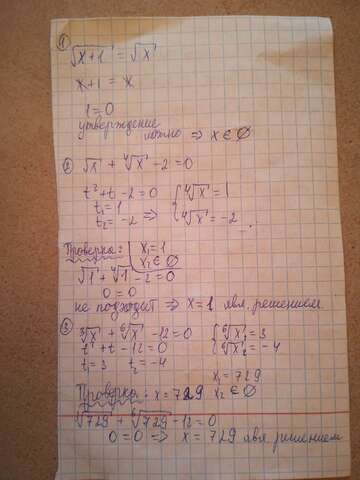 1
√x+1 = √x
x+1 = x
1=0
утверждение
ложно ⇒ x ∈ ∅
2
√x + ⁴√x - 2 = 0
t² + t - 2 = 0
t₁ = 1
t₂ = -2 ⇒
{ ⁴√x = 1
⁴√x = -2
Проверка:
x₁ = 1
x₂ ∈ ∅
√1 + ⁴√1 - 2 = 0
0 = 0
не подходит ⇒ x = 1 явл. решением
3
³√x + ⁶√x - 12 = 0
t² + t - 12 = 0
t₁ = 3 t₂ = -4
{ ⁶√x₁ = 3
⁶√x₂ = -4
x₁ = 729
Проверка: x = 729 x₂ ∈ ∅
√729 + ⁶√729 - 12 = 0
0 = 0 ⇒ x = 729 явл решением